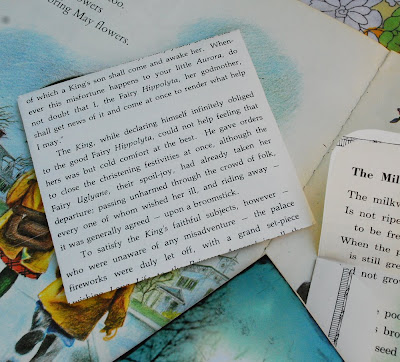 too.
oring May flowers.
of which a King's son shall come and awake her. When-
ever this misfortune happens to your little Aurora, do
not doubt that I, the Fairy Hippolyta, her godmother,
shall get news of it and come at once to render what help
I may."
The King, while declaring himself infinitely obliged
to the good Fairy Hippolyta, could not help feeling that
hers was but cold comfort at the best. He gave orders
to close the christening festivities at once, although the
Fairy Uglyane, their spoil-joy, had already taken her
departure; passing unharmed through the crowd of folk,
every one of whom wished her ill, and riding away —
it was generally agreed — upon a broomstick.
To satisfy the King's faithful subjects, however —
who were unaware of any misadventure — the palace
fireworks were duly let off, with a grand set-piece
The Mil
The milkw
Is not ripe
When the p
is still gre
d not grow
poo
s bro
seed